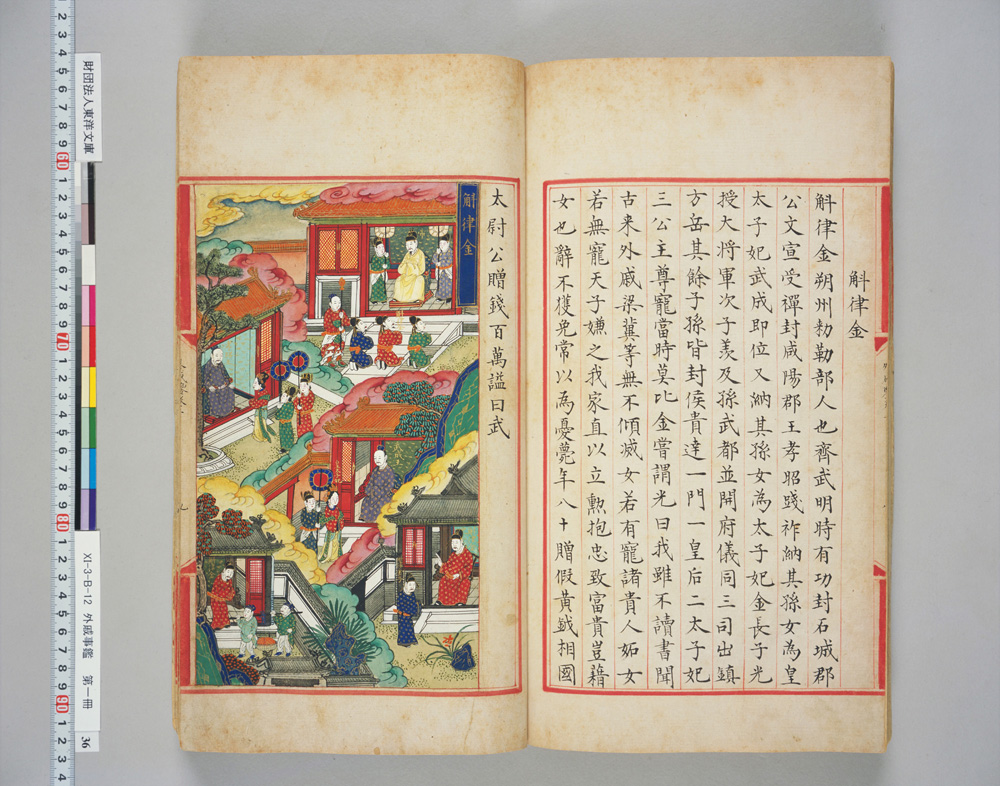 斛律金
斛律金朔州勑勒部人也齊武明時有功封石城郡
公文宣受禪封咸陽郡王孝昭踐祚納其孫女為皇
太子妃武成即位又納其孫女為太子妃金長子光
授大将軍次子羡及孫武都並開府儀同三司出鎮
方岳其餘子孫皆封侯貴達一門一皇后二太子妃
三公主尊寵當時莫比金嘗謂光曰我雖不讀書聞
古来外戚梁冀等無不傾滅女若有寵諸貴人妬女
若無寵天子嫌之我家直以立勲抱忠致富貴豈藉
女也辭不獲免常以為憂薨年八十贈假黃鉞相國
太尉公贈錢百萬謚曰武
斛律金
財団法人東洋文庫
XI-3-B-12 外戚事鑑 第一冊
36
2 3 4 5 6 7 8 9 60 1 2 3 4 5 6 7 8 9 70 1 2 3 4 5 6 7 8 9 80 1 2 3 4 5 6 7 8 9 90 1 2 3 4